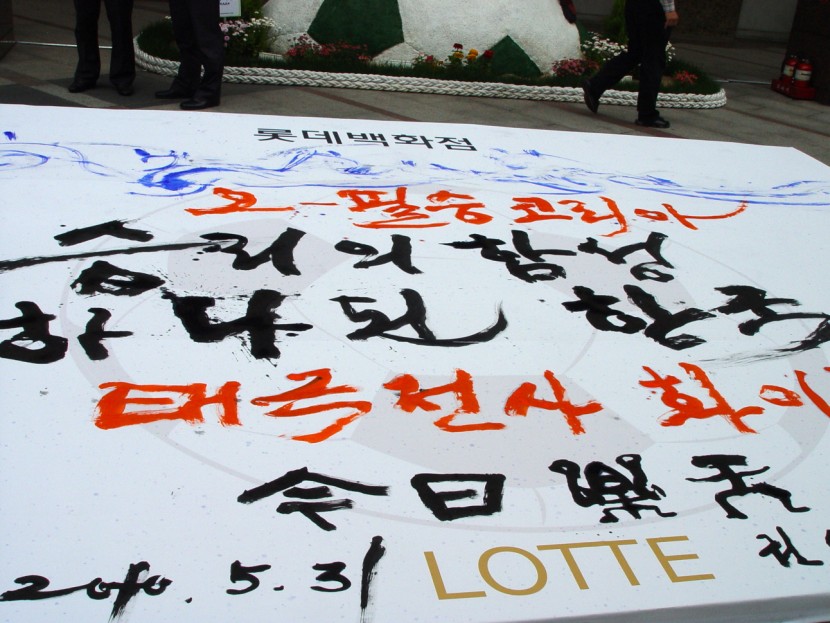 롯데백화점
오-필승코리아
승리의 함성
하나된 한국
태극전사 화이
今日樂
2010.5.31 LOTTE